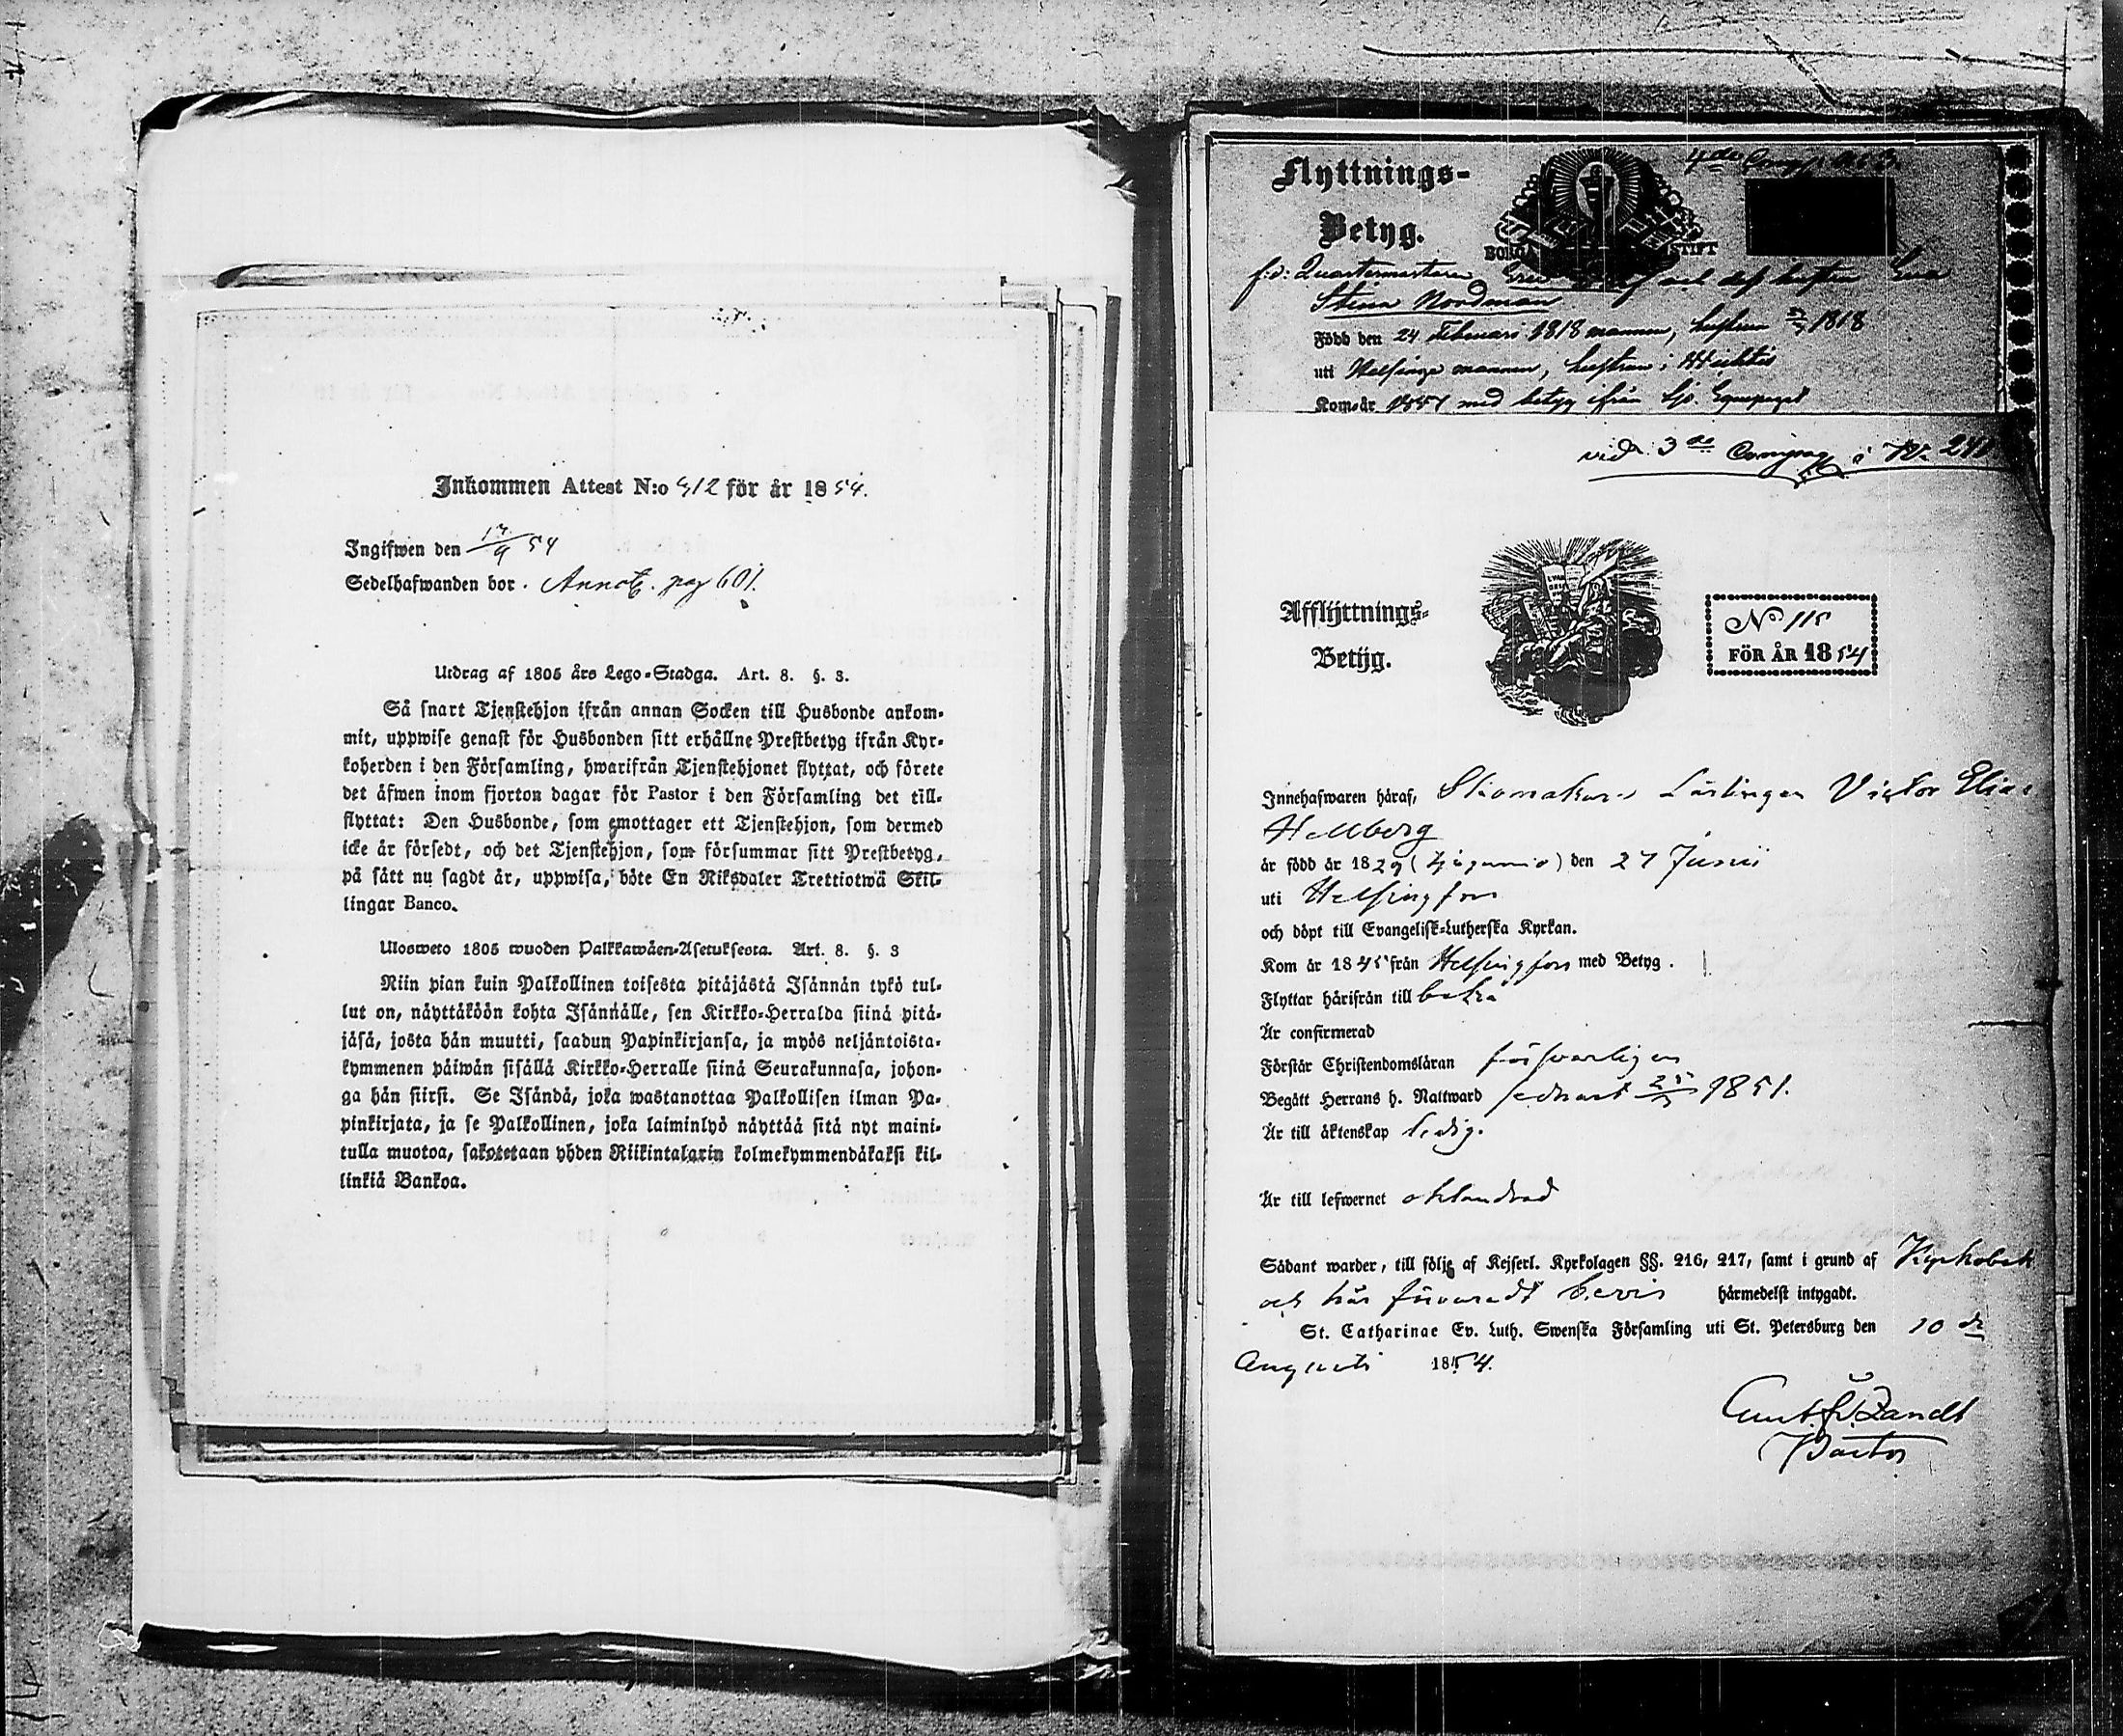 Inkommen Attest N:o 412 för år 1854.
Ingifwen den 17/9 54
Sedelhafwanden bor. Annot. pag 601.
Utdrag af 1805 års Lego-Stadga. Art. 8. §. 3.
Så snart Tjenstehjon ifrån annan Socken till Husbonde ankom-
mit, uppwise genast för Husbonden sitt erhållne Prestbetyg ifrån Kyr-
koherden i den Församling, hwarifrån Tjenstehjonet flyttat, och förete
det äfwen inom fjorton dagar för Pastor i den Församling det till-
flyttat: Den Husbonde, som emottager ett Tjenstehjon, som dermed
icke är försedt, och det Tjenstehjon, som försummar sitt Prestbetyg,
på sätt nu sagdt är, uppwisa, böte En Riksdaler Trettiotwå Skil-
lingar Banco.
Ulosweto 1805 wuoden Palkkawäen-Asetuksesta. Art. 8. §. 3
Niin pian kuin Palkollinen toisesta pitäjästä Isännän tykö tul-
lut on, näyttäköön kohta Isännälle, sen Kirkko-Herralda siinä pitä-
jäsä, josta hän muutti, saadun Papinkirjansa, ja myös neljäntoista-
kymmenen päiwän sisällä Kirkko-Herralle siinä Seurakunnasa, johon-
ga hän siirsi. Se Isändä, joka wastanottaa Palkollisen ilman Pa-
pinkirjata, ja se Palkollinen, joka laiminlyö näyttää sitä nyt maini-
tulla muotoa, sakotetaan yhden Riikintalarin kolmekymmendäkaksi kil-
linkiä Bankoa.
Flyttnings-
Betyg.
BORGÅ STIFT
f.d. Quartermästaren och des hustru Eva
Stina Nordman
Född den 24 Februari 1818 mannen, hustrun 1818
uti Helsinge mannen, hustrun i
Kom år 1851 med betyg ifrån Sjö Equipaget
vid 3de Compag
Afflyttnings-
Betyg.
No 115
FÖR ÅR 1854
Innehafwaren häraf, Lärlingen Victor Elias
Hellberg
är född år 1829 (tjugunio) den 27 Junii
uti Helsingfors
och döpt till Evangelisk-Lutherska Kyrkan.
Kom år 1845 från Helsingfors med Betyg.
Flyttar härifrån till baka
Är confirmerad
Förstår Christendomsläran försvarligen
Begått Herrans h. Nattward sednast 1851.
Är till äktenskap ledig.
Är till lefwernet oklandrad
Sådant warder, till följe af Kejserl. Kyrkolagen §§. 216, 217, samt i grund af Kyrkobok
och här bevis härmedelst intygadt.
St. Catharinae Ev. Luth. Swenska Församling uti St. Petersburg den 10 de
Augusti 1854.
Zandt
Pastor